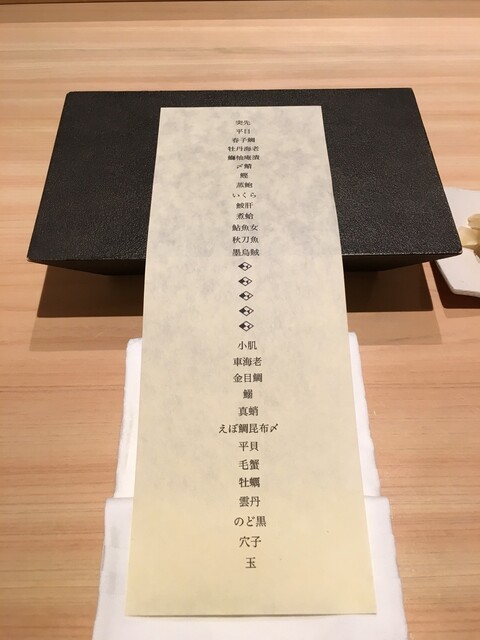 突先
平目
春子鯛
牡丹海老
鰤柚庵漬
〆鯖
鰹
蒸鮑
いくら
鮟肝
煮鮑
鮎魚女
秋刀魚
墨烏賊
小肌
車海老
金目鯛
鰯
真蛸
えぼ鯛昆布〆
平貝
毛蟹
牡蠣
雲丹
のど黒
穴子
玉